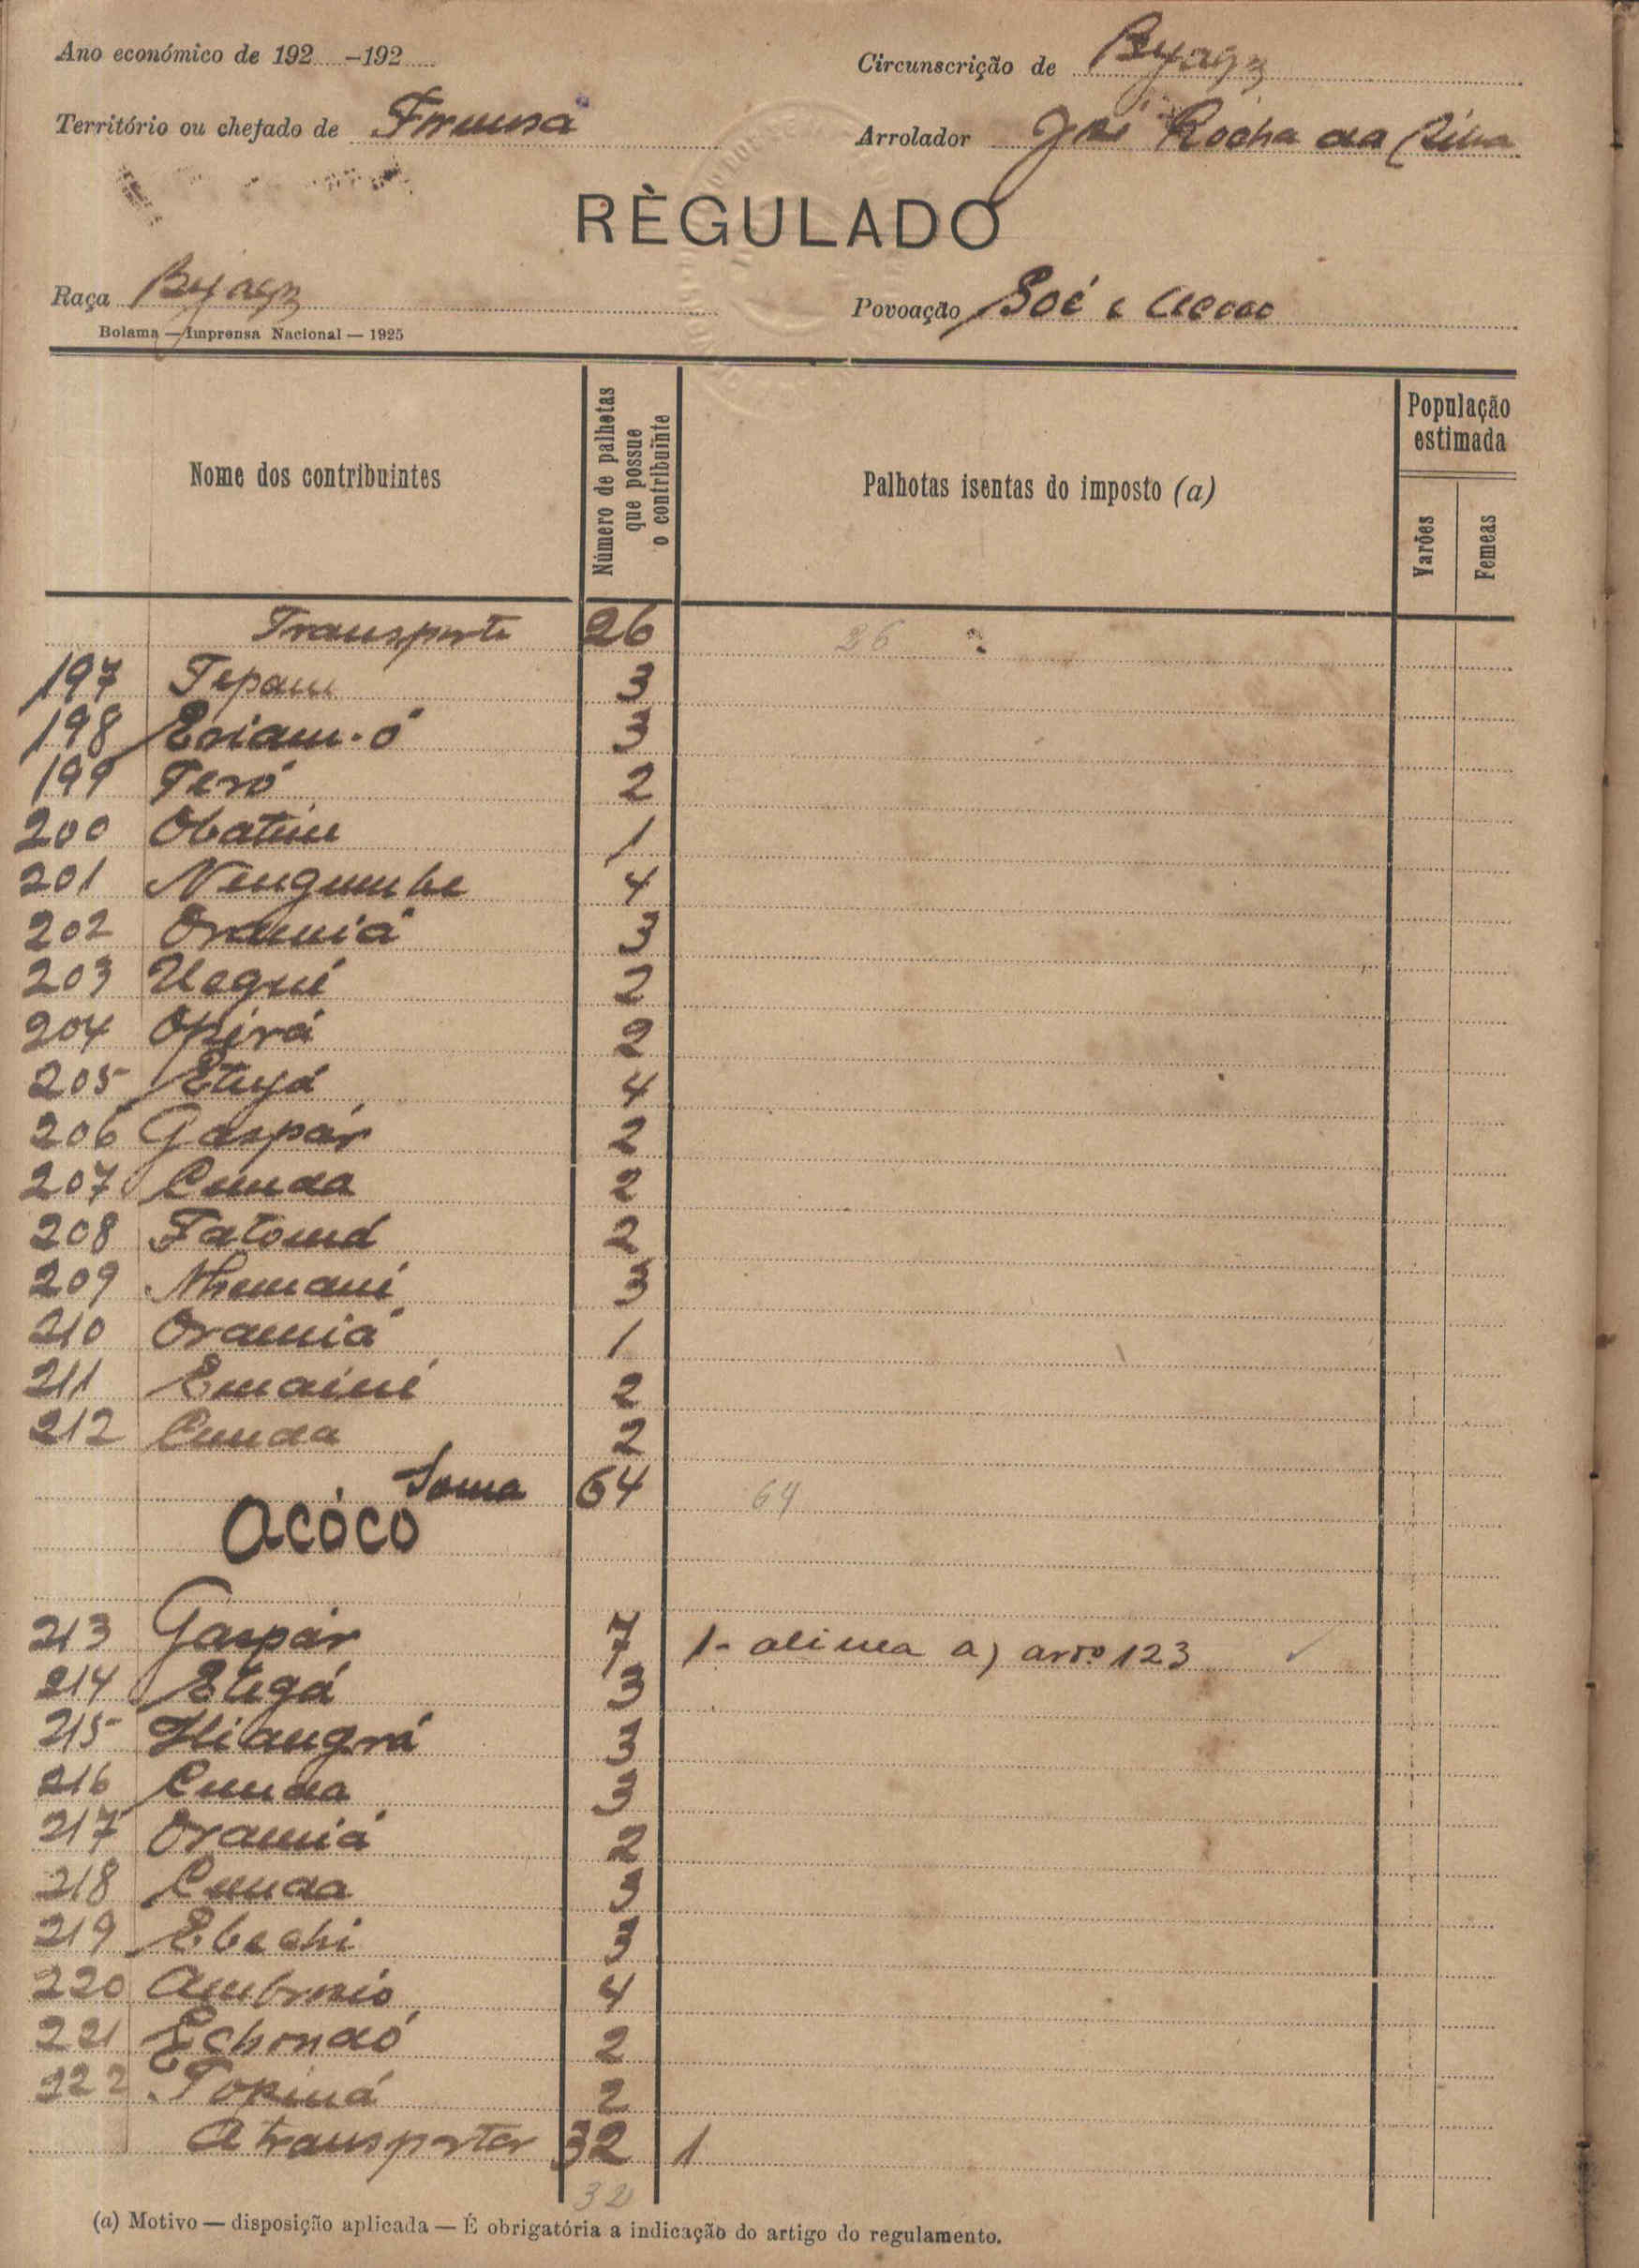 Ano económico de 192 -192
Circunscrição de Byagz
Território ou chefado de Formosa
Arrolador José Rocha da Silva
RÈGULADO
Raça Byagz
Povoação Soé e Acoco
Bolama — Imprensa Nacional — 1925
Nome dos contribuintes
Número de palhotas que possue o contribuinte
Palhotas isentas do imposto (a)
População estimada
Varões
Femeas
Transporte 26 26
197 Tepam 3
198 Eoiam-ó 3
199 Teró 2
200 Obatim 1
201 Nengumbe 4
202 Oramiá 3
203 Uequí 2
204 Opirá 2
205 Etigá 4
206 Gaspár 2
207 Cunda 2
208 Fatomá 2
209 Nhemaní 3
210 Oramiá 1
211 Emainí 2
212 Cunda 2
Soma 64 64
Acóco
213 Gaspár 7 1- alinea a) artº 123
214 Etigá 3
215 Hiangrá 3
216 Cunda 3
217 Oramiá 2
218 Cunda 3
219 Ebechi 3
220 Ambrosio 4
221 Echondó 2
222 Topiná 2
A transportar 32 1
32
(a) Motivo — disposição aplicada — É obrigatória a indicação do artigo do regulamento.